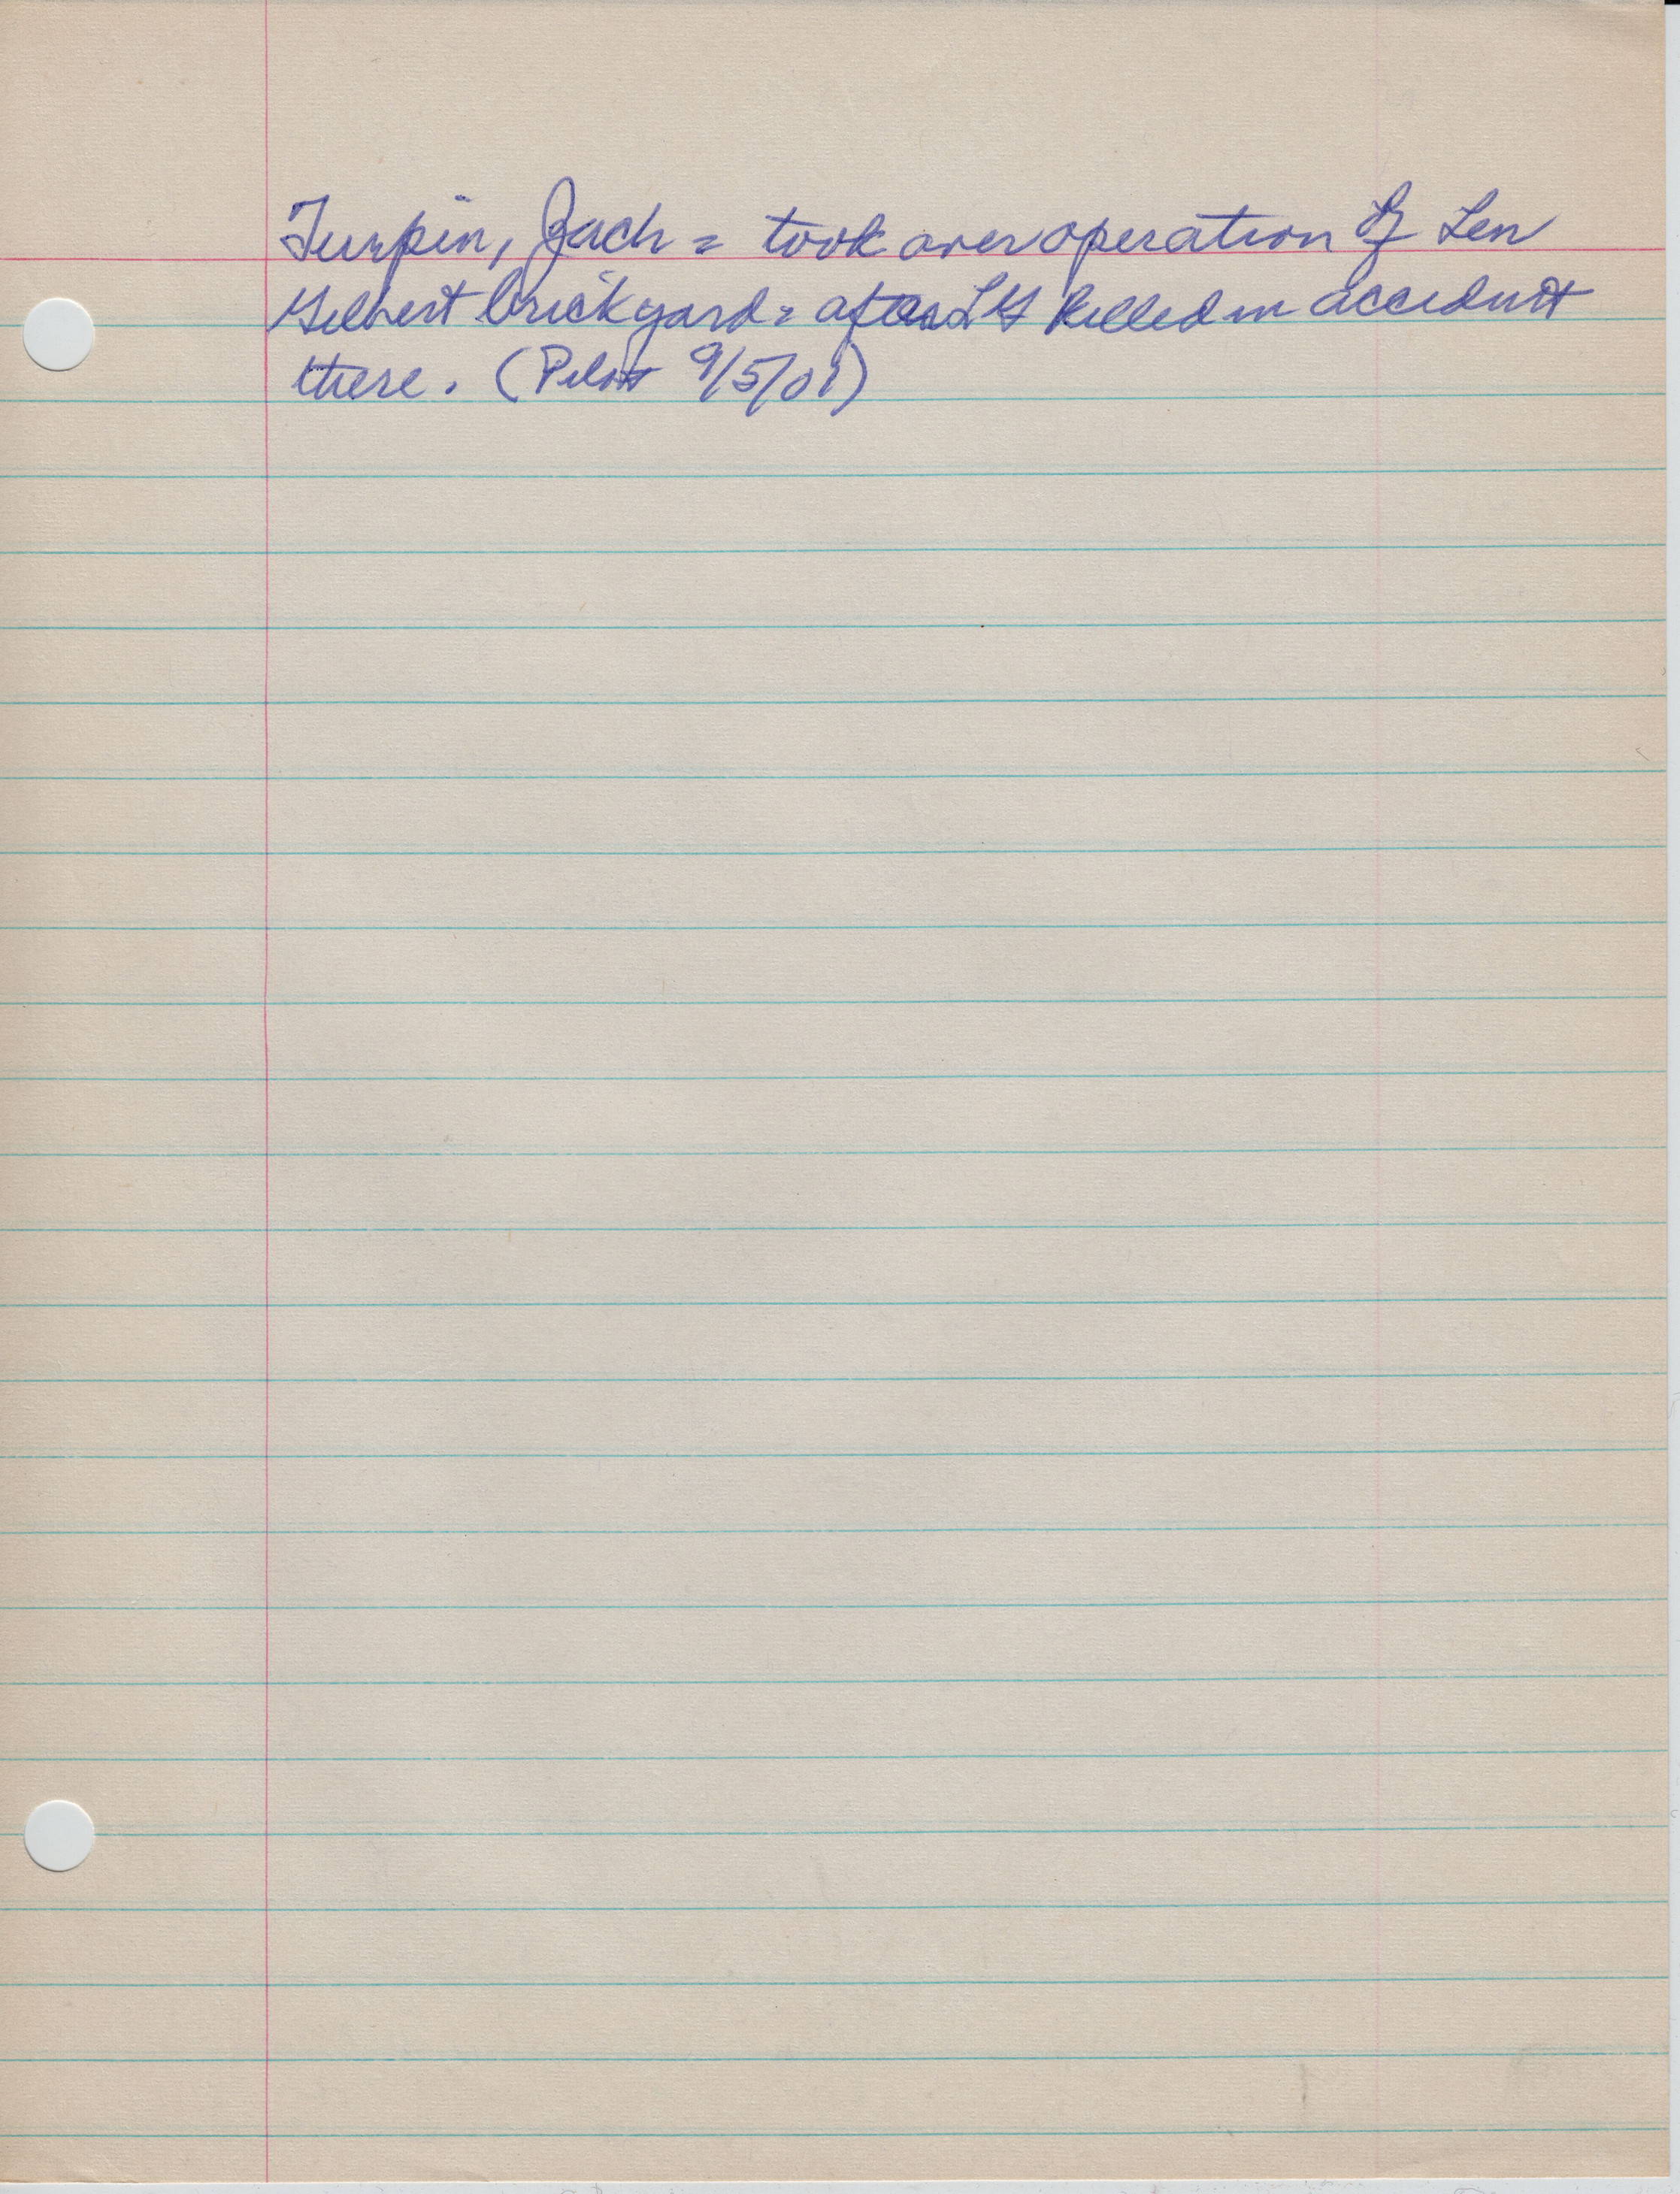 Turpin, Zach = took over operation of Len
Gilbert brickyard = after LG killed in accident
there. (Pilot 9/5/01)